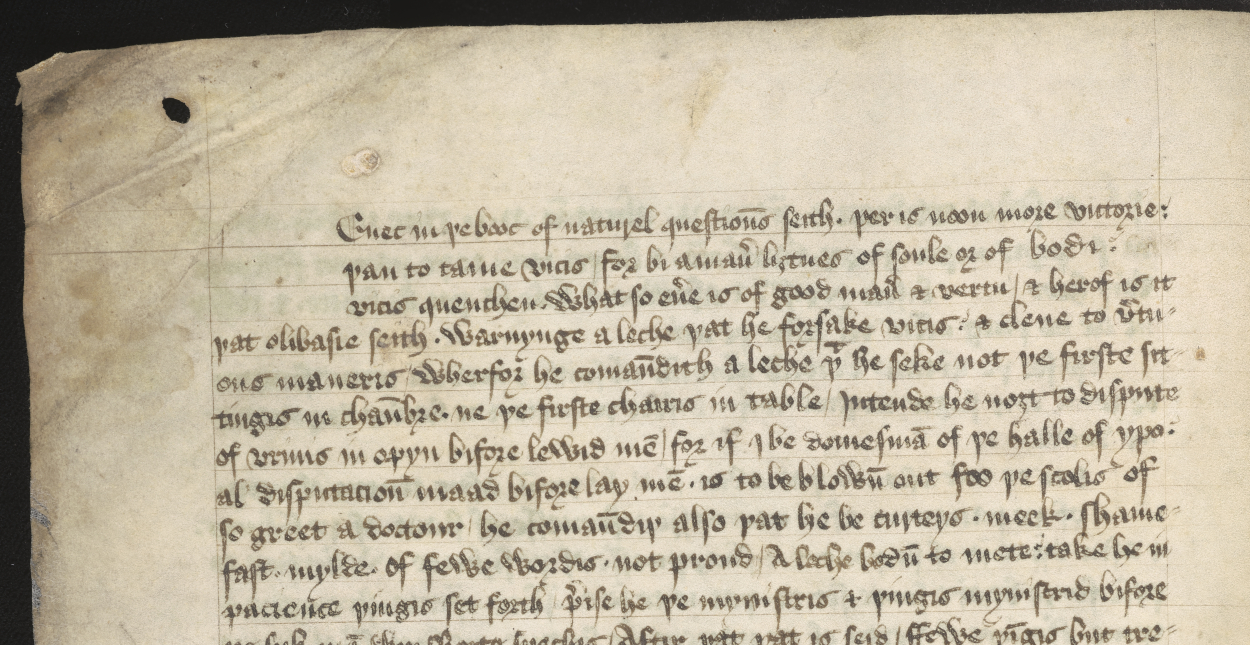 Enec in þe booc of naturel questiouns seith. þer is noon more victorie:
þan to tame vicis / for bi a mañ ỽtues of soule or of bodi:
vicis quenchen. What so eũe is of good mañ & vertu / & herof is it
þat olibasie seith. Warnynge a leche þat he forsake vicis: & cleue to ỽtu-
ous maneris / Wherfor he comaūdith a leche þt he seke not þe firste sit-
tingis in chaūbre. ne þe firste chairis in table / Intende he noȝt to dispute
of vrinis in opyn bifore lewid mē / for if I be domesmā of þe halle of ypo:
al disputacioū maad bifore lay mē. is to be blowū out fro þe scolis of
so greet a doctour / he comaūdiþ also þat he be curteys. meek. shame-
fast. mylde. of fewe wordis. not proud / A leche bodū to mete: take he in
pacience þingis set forth / p̃ise he þe mynistris & þingis mynistrid bifore
Aftir þat þat is seid / ffewe þīgis but tre-